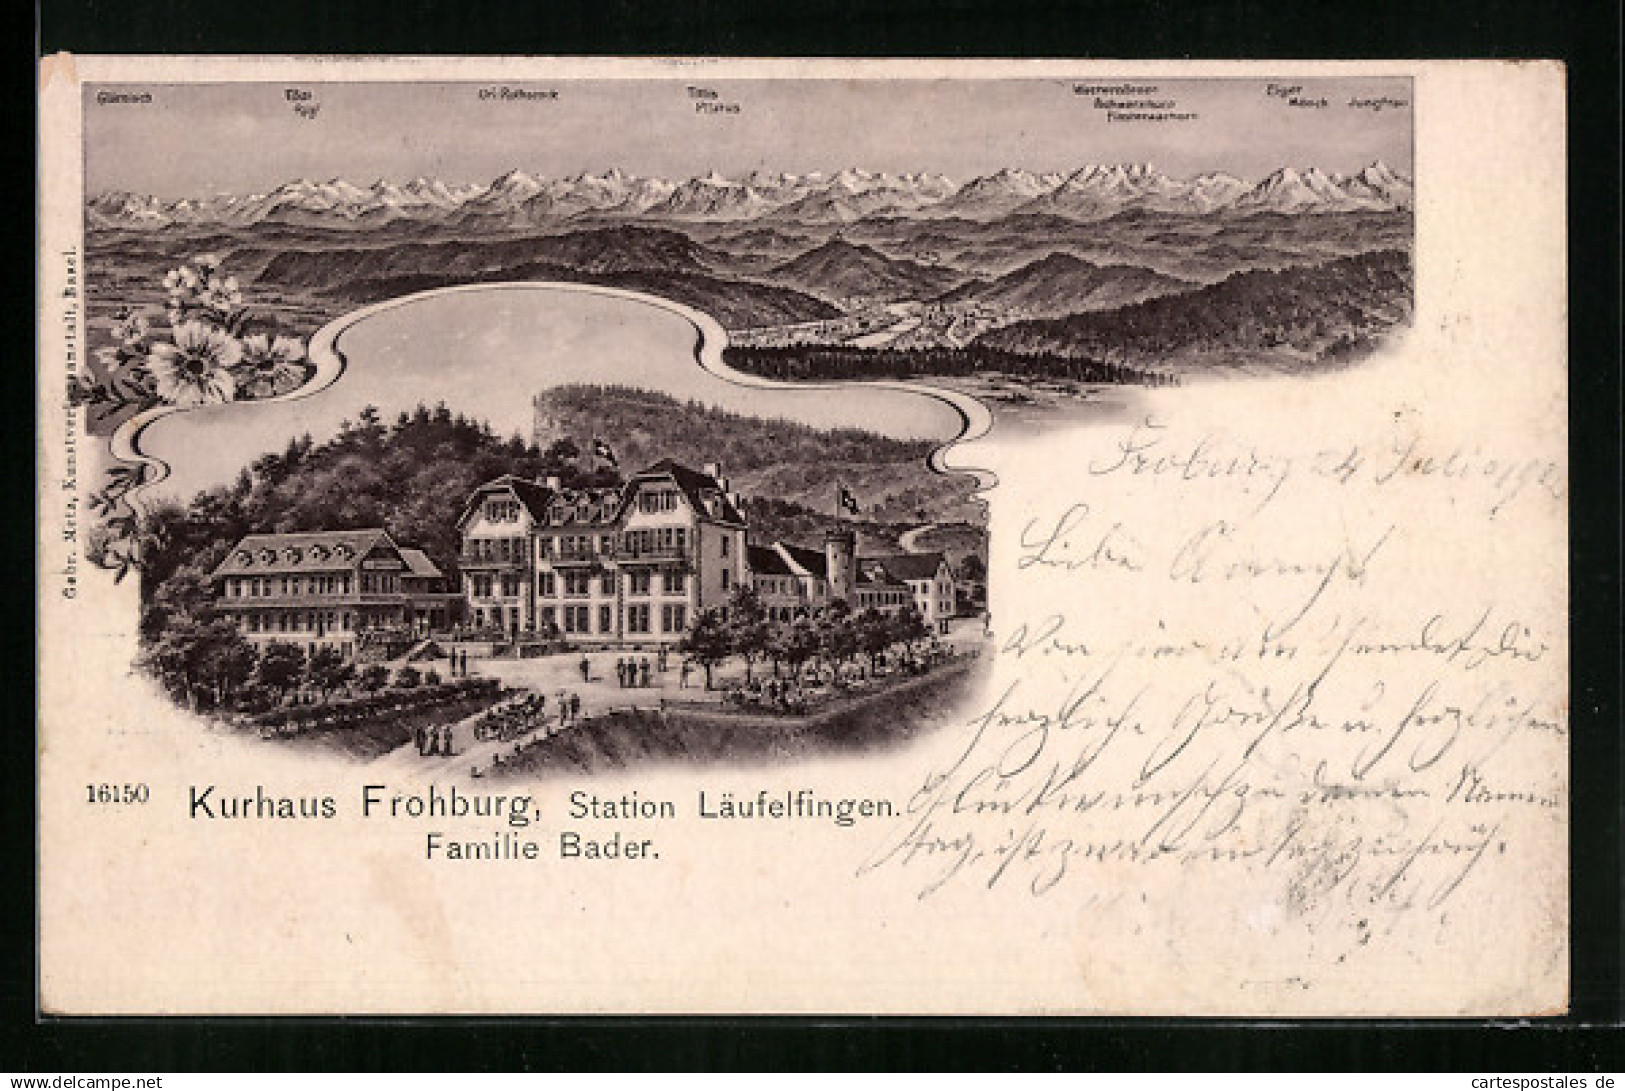 Glärnisch
Tödi
Rigi
Uri-Rothstock
Titlis
Pilatus
Wetterhörner
Schreckhorn
Finsteraarhorn
Eiger
Mönch
Jungfrau
Gebr. Metz, Kunstverlagsanstalt, Basel.
Froburg 24 Juli 190
Liebe
Von hier aus sendet Dir
herzliche Grüße u. herzlichen
Glückwunsch zu deinem Namens
tag, ist zwar ein Tag zu früh.
16150 Kurhaus Frohburg, Station Läufelfingen.
Familie Bader.
cartespostales de